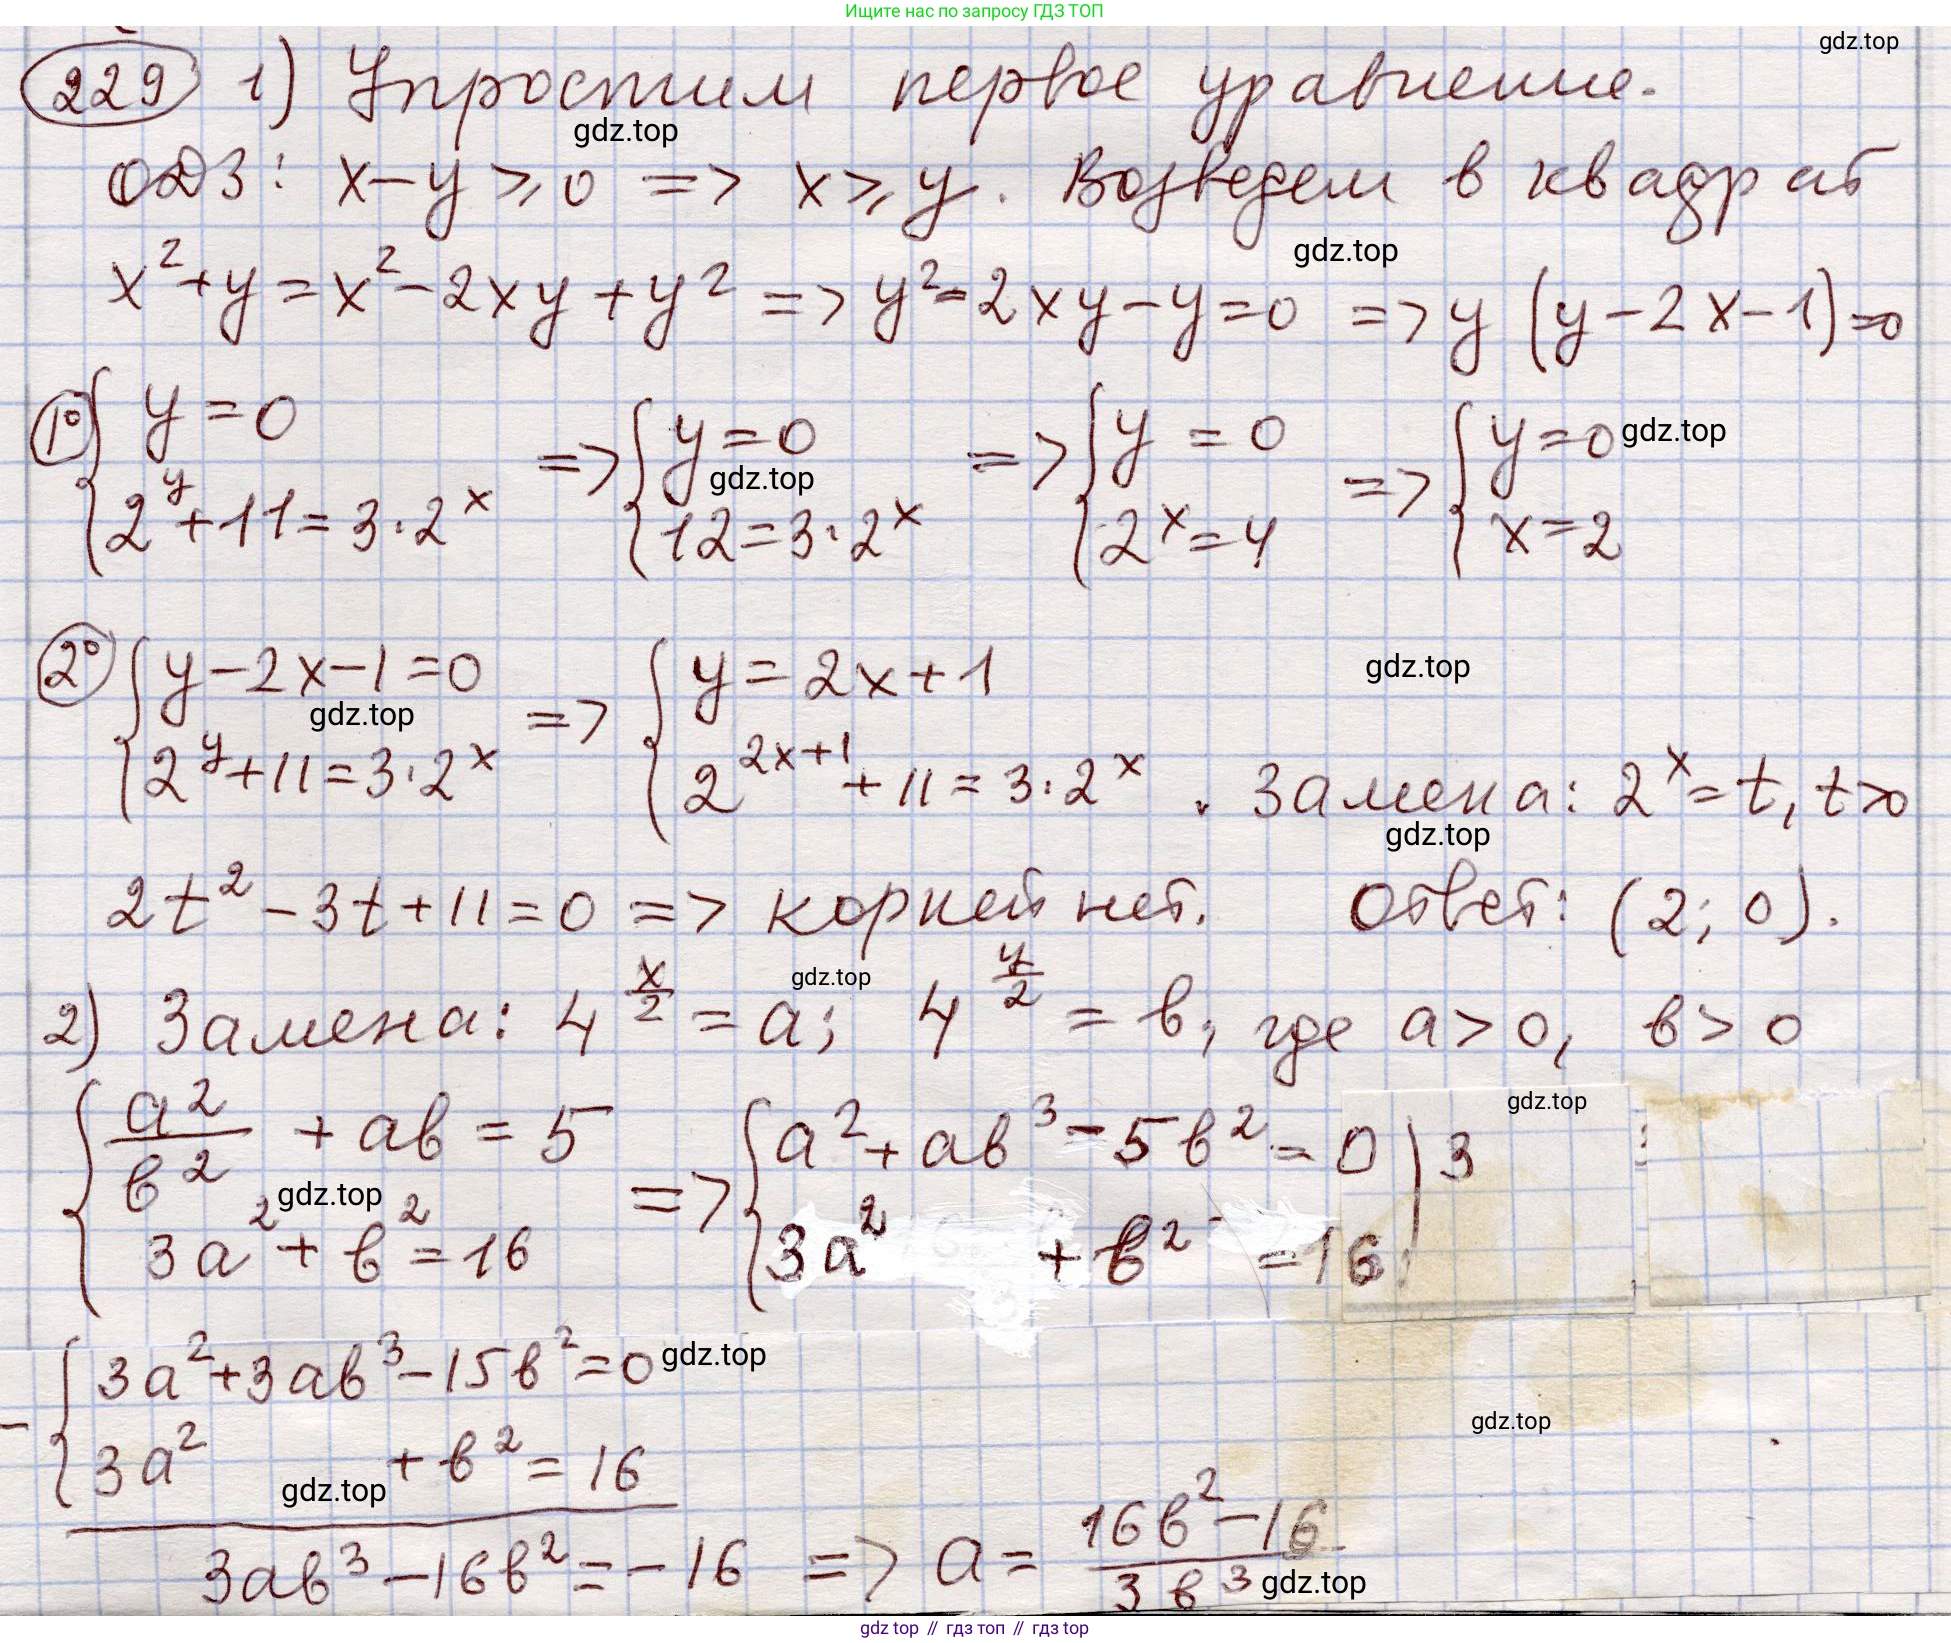 Ищите нас по запросу ГДЗ ТОП
gdz.top
229 1) Упростим первое уравнение.
gdz.top
ОДЗ: x-y⩾0 => x⩾y. Возведем в квадрат
gdz.top
x²+y=x²-2xy+y² => y²-2xy-y=0 => y(y-2x-1)=0
1° { y=0 ; 2^y+11=3·2^x => { y=0 ; 12=3·2^x => { y=0 ; 2^x=4 => { y=0 ; x=2
gdz.top
gdz.top
2° { y-2x-1=0 ; 2^y+11=3·2^x => { y=2x+1 ; 2^(2x+1)+11=3·2^x . Замена: 2^x=t, t>0
gdz.top
gdz.top
gdz.top
2t²-3t+11=0 => корней нет. Ответ: (2; 0).
gdz.top
2) Замена: 4^(x/2)=a; 4^(y/2)=в, где a>0, в>0
gdz.top
{ a²/в² + aв = 5 ; 3a²+в²=16 => { a²+aв³-5в²=0 | 3 ; 3a² + в² =16
gdz.top
- { 3a²+3aв³-15в²=0
gdz.top
3a² + в² = 16
gdz.top
gdz.top
3aв³-16в²=-16 => a= (16в²-16)/(3в³)
gdz.top
gdz top // гдз топ // гдз top